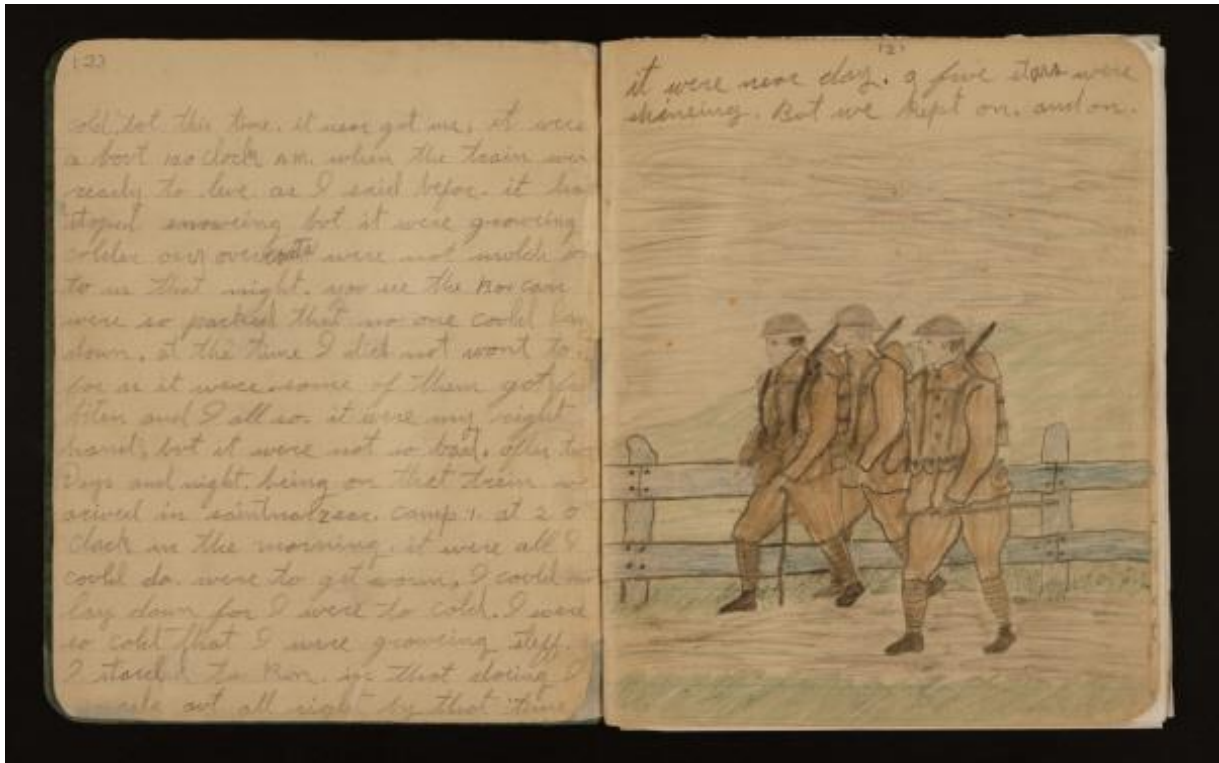 123
cold. bot this time. it near got me. it were
a bovt 12 o clock am. when the train wer
ready to leve as I said befor. it ha
stoped snoweing but it were groweing
colder ovr overcoats were not mutch
to us that night. you see the Box cars
were so packed that no one covld lay
down. at the time I did not wont to.
for as it were. some of them got
biten and I all so. it were my right
hand, but it were not so bad. after
Days and night. being on that train
arived in saint Camp. 1. at 2 o
clock in the morning. it were all I
covld do. were to get warm. I covld
lay down for I were to cold. I were
so cold that I were groweing steff.
I started to Run. in that doeing I
ovt all right by that time
121
it were near day. a few stars were
shineing. But we kept on. and on.